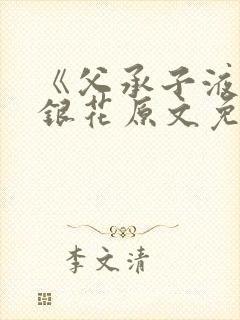 《父承子液
銀花原文免
李文清